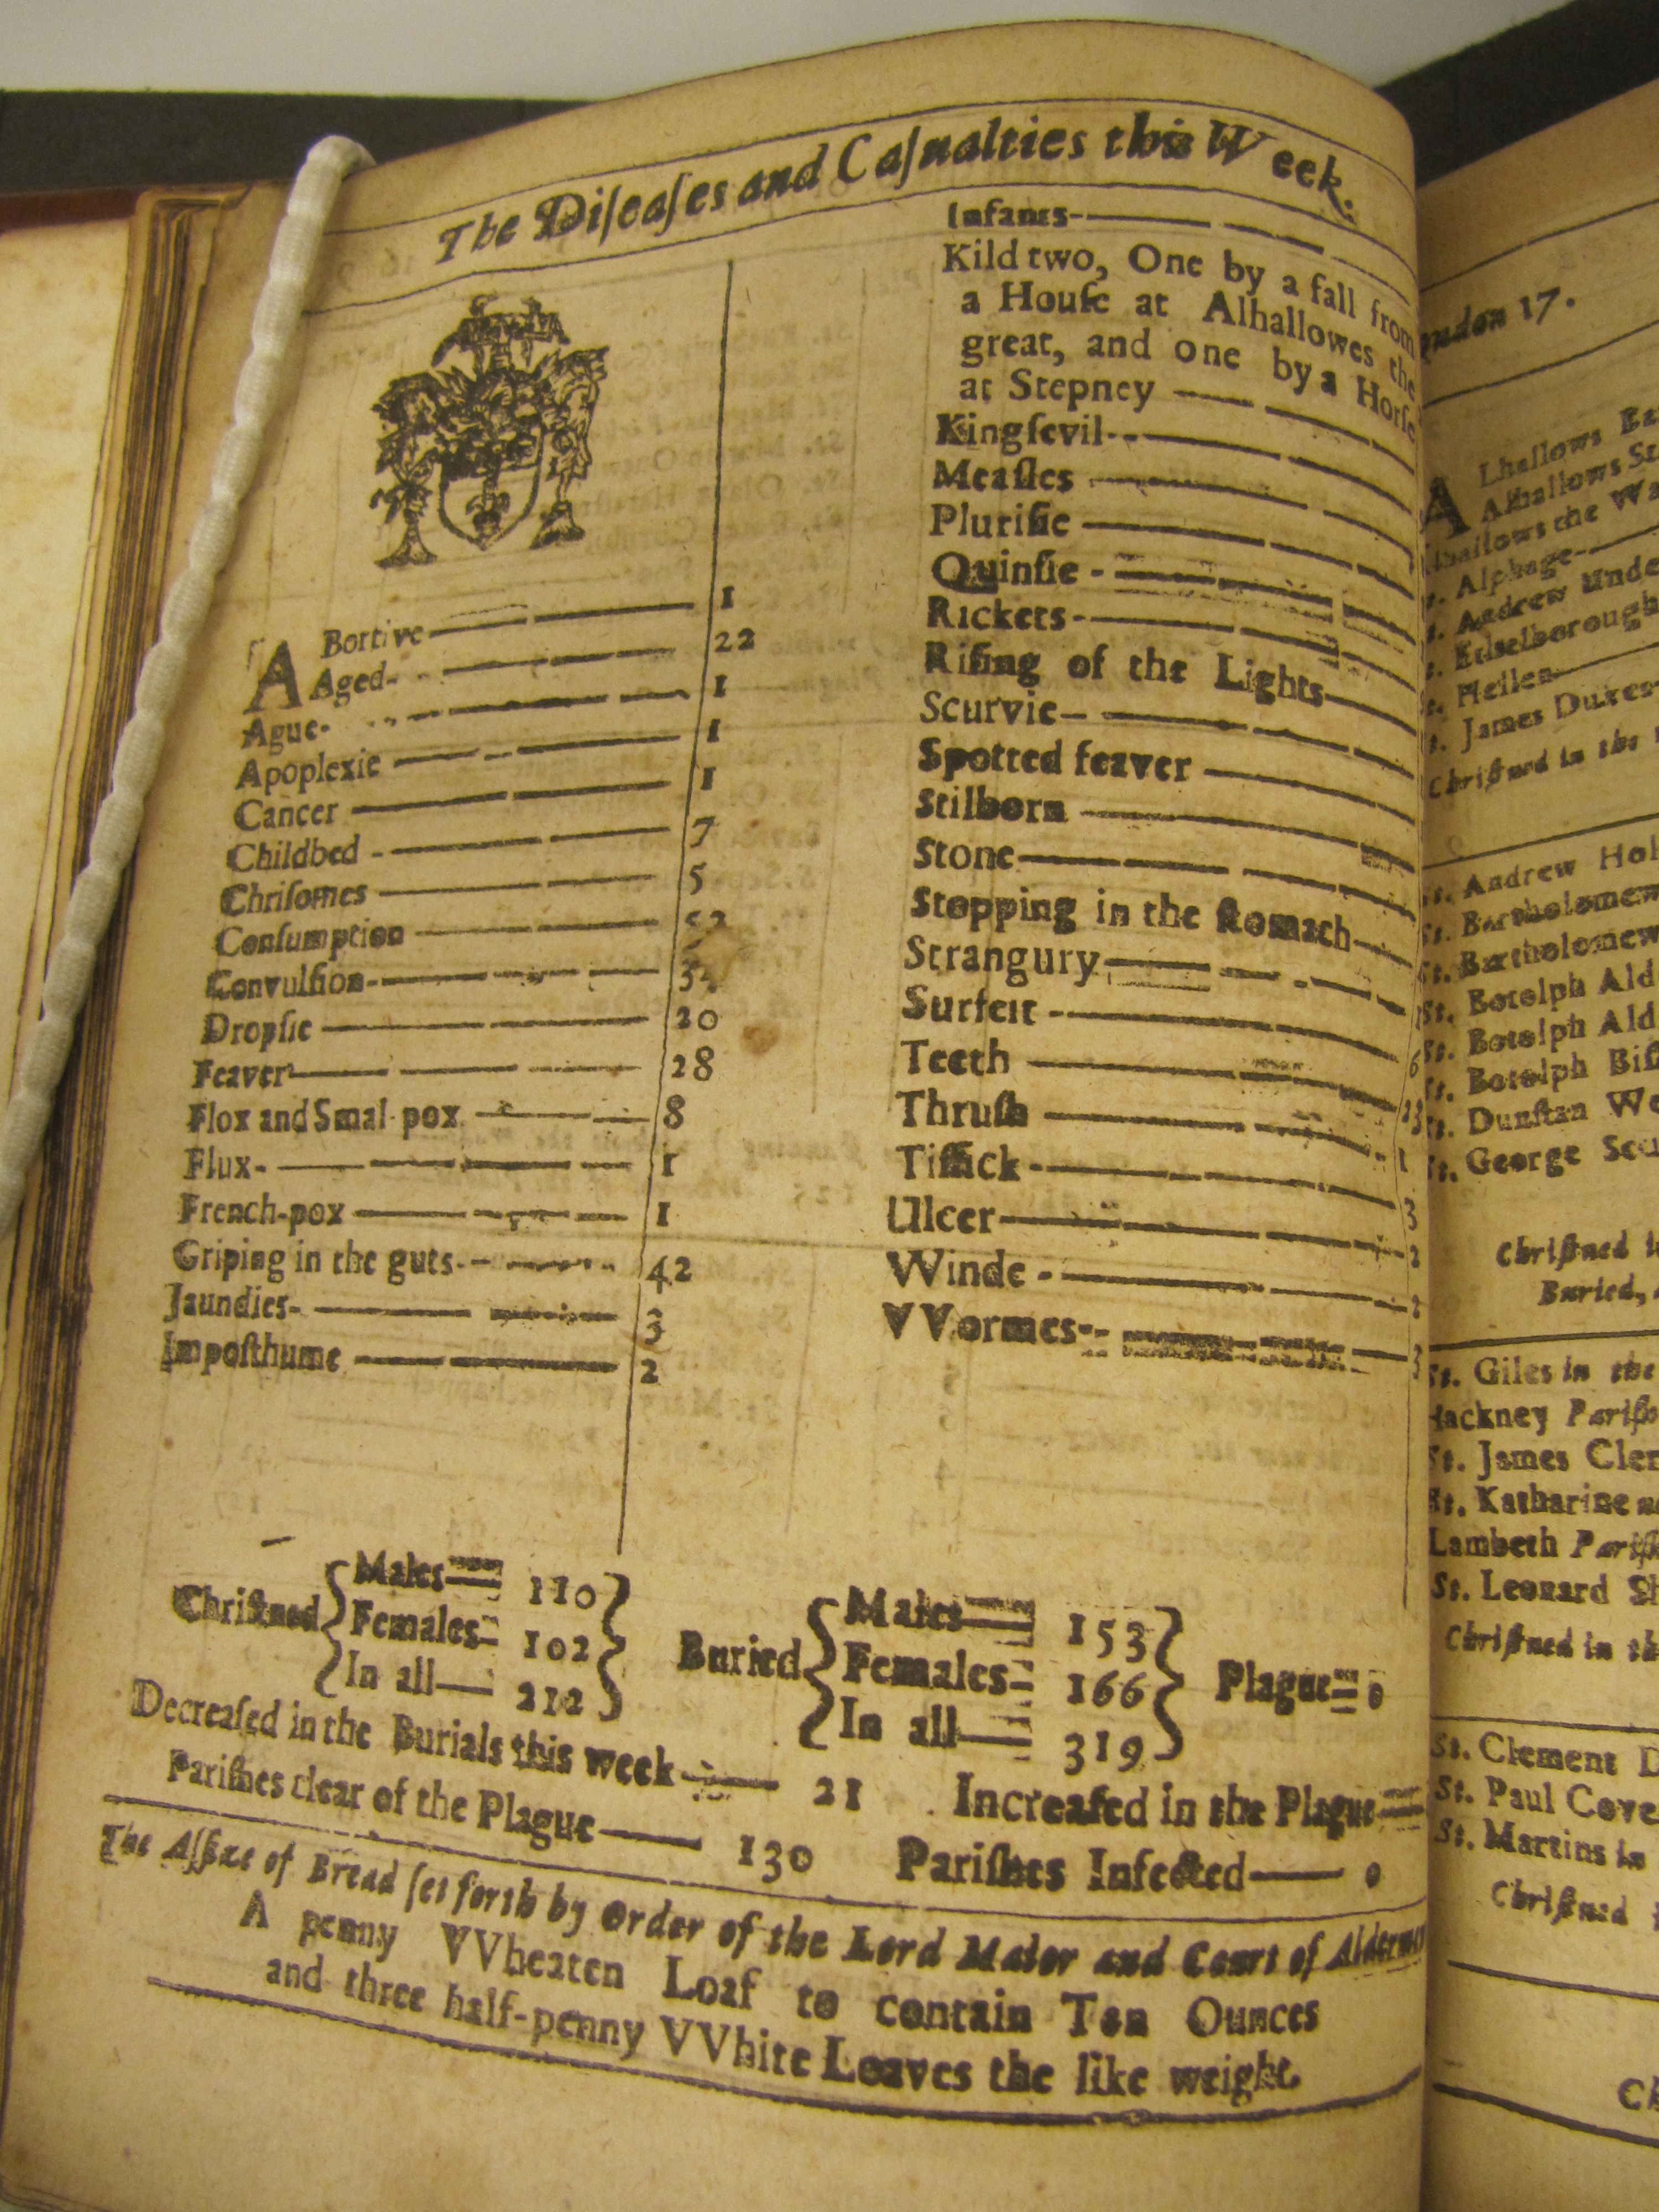 The Diſeaſes and Caſualties this Week.
ABortive 1
Aged 22
Ague 1
Apoplexie 1
Cancer 1
Childbed 7
Chriſomes 5
Conſumption
Convulſion
Dropſie 20
Feaver 28
Flox and Smal-pox 8
Flux 1
French-pox 1
Griping in the guts 42
Jaundies 3
Impoſthume 2
Infants
Kild two, One by a fall from
a Houſe at Alhallowes the
great, and one by a Horſe
at Stepney
Kingſevil
Meaſles
Pluriſie
Quinſie
Rickets
Riſing of the Lights
Scurvie
Spotted feaver
Stilborn
Stone
Stopping in the ſtomach
Strangury
Surfeit 6
Teeth
Thruſh 1
Tiſſick 3
Ulcer 2
Winde 2
VVormes 3
Chriſtned
Males 110
Females 102
In all 212
Buried
Males 153
Females 166
In all 319
Plague 0
Decreaſed in the Burials this week 21
Increaſed in the Plague
Pariſhes clear of the Plague 130
Pariſhes Infected 0
The Aſſize of Bread ſet forth by Order of the Lord Maior and Court of
A penny VVheaten Loaf to contain Ten Ounces
and three half-penny VVhite Loaves the like weight.
17.
ALhallows
Alhallows
the
Alphage
Andrew
Hellen
James
Chriſtned in the
St. Andrew
St. Bartholomew
St. Bartholomew
St. Botolph
St. Botolph
St. Botolph
Dunſtan
St. George
Chriſtned
Buried,
St. Giles in the
Hackney
St. James
St. Katharine
Lambeth
St. Leonard
Chriſtned in
St. Clement
St. Paul
St. Martins in
Chriſtned